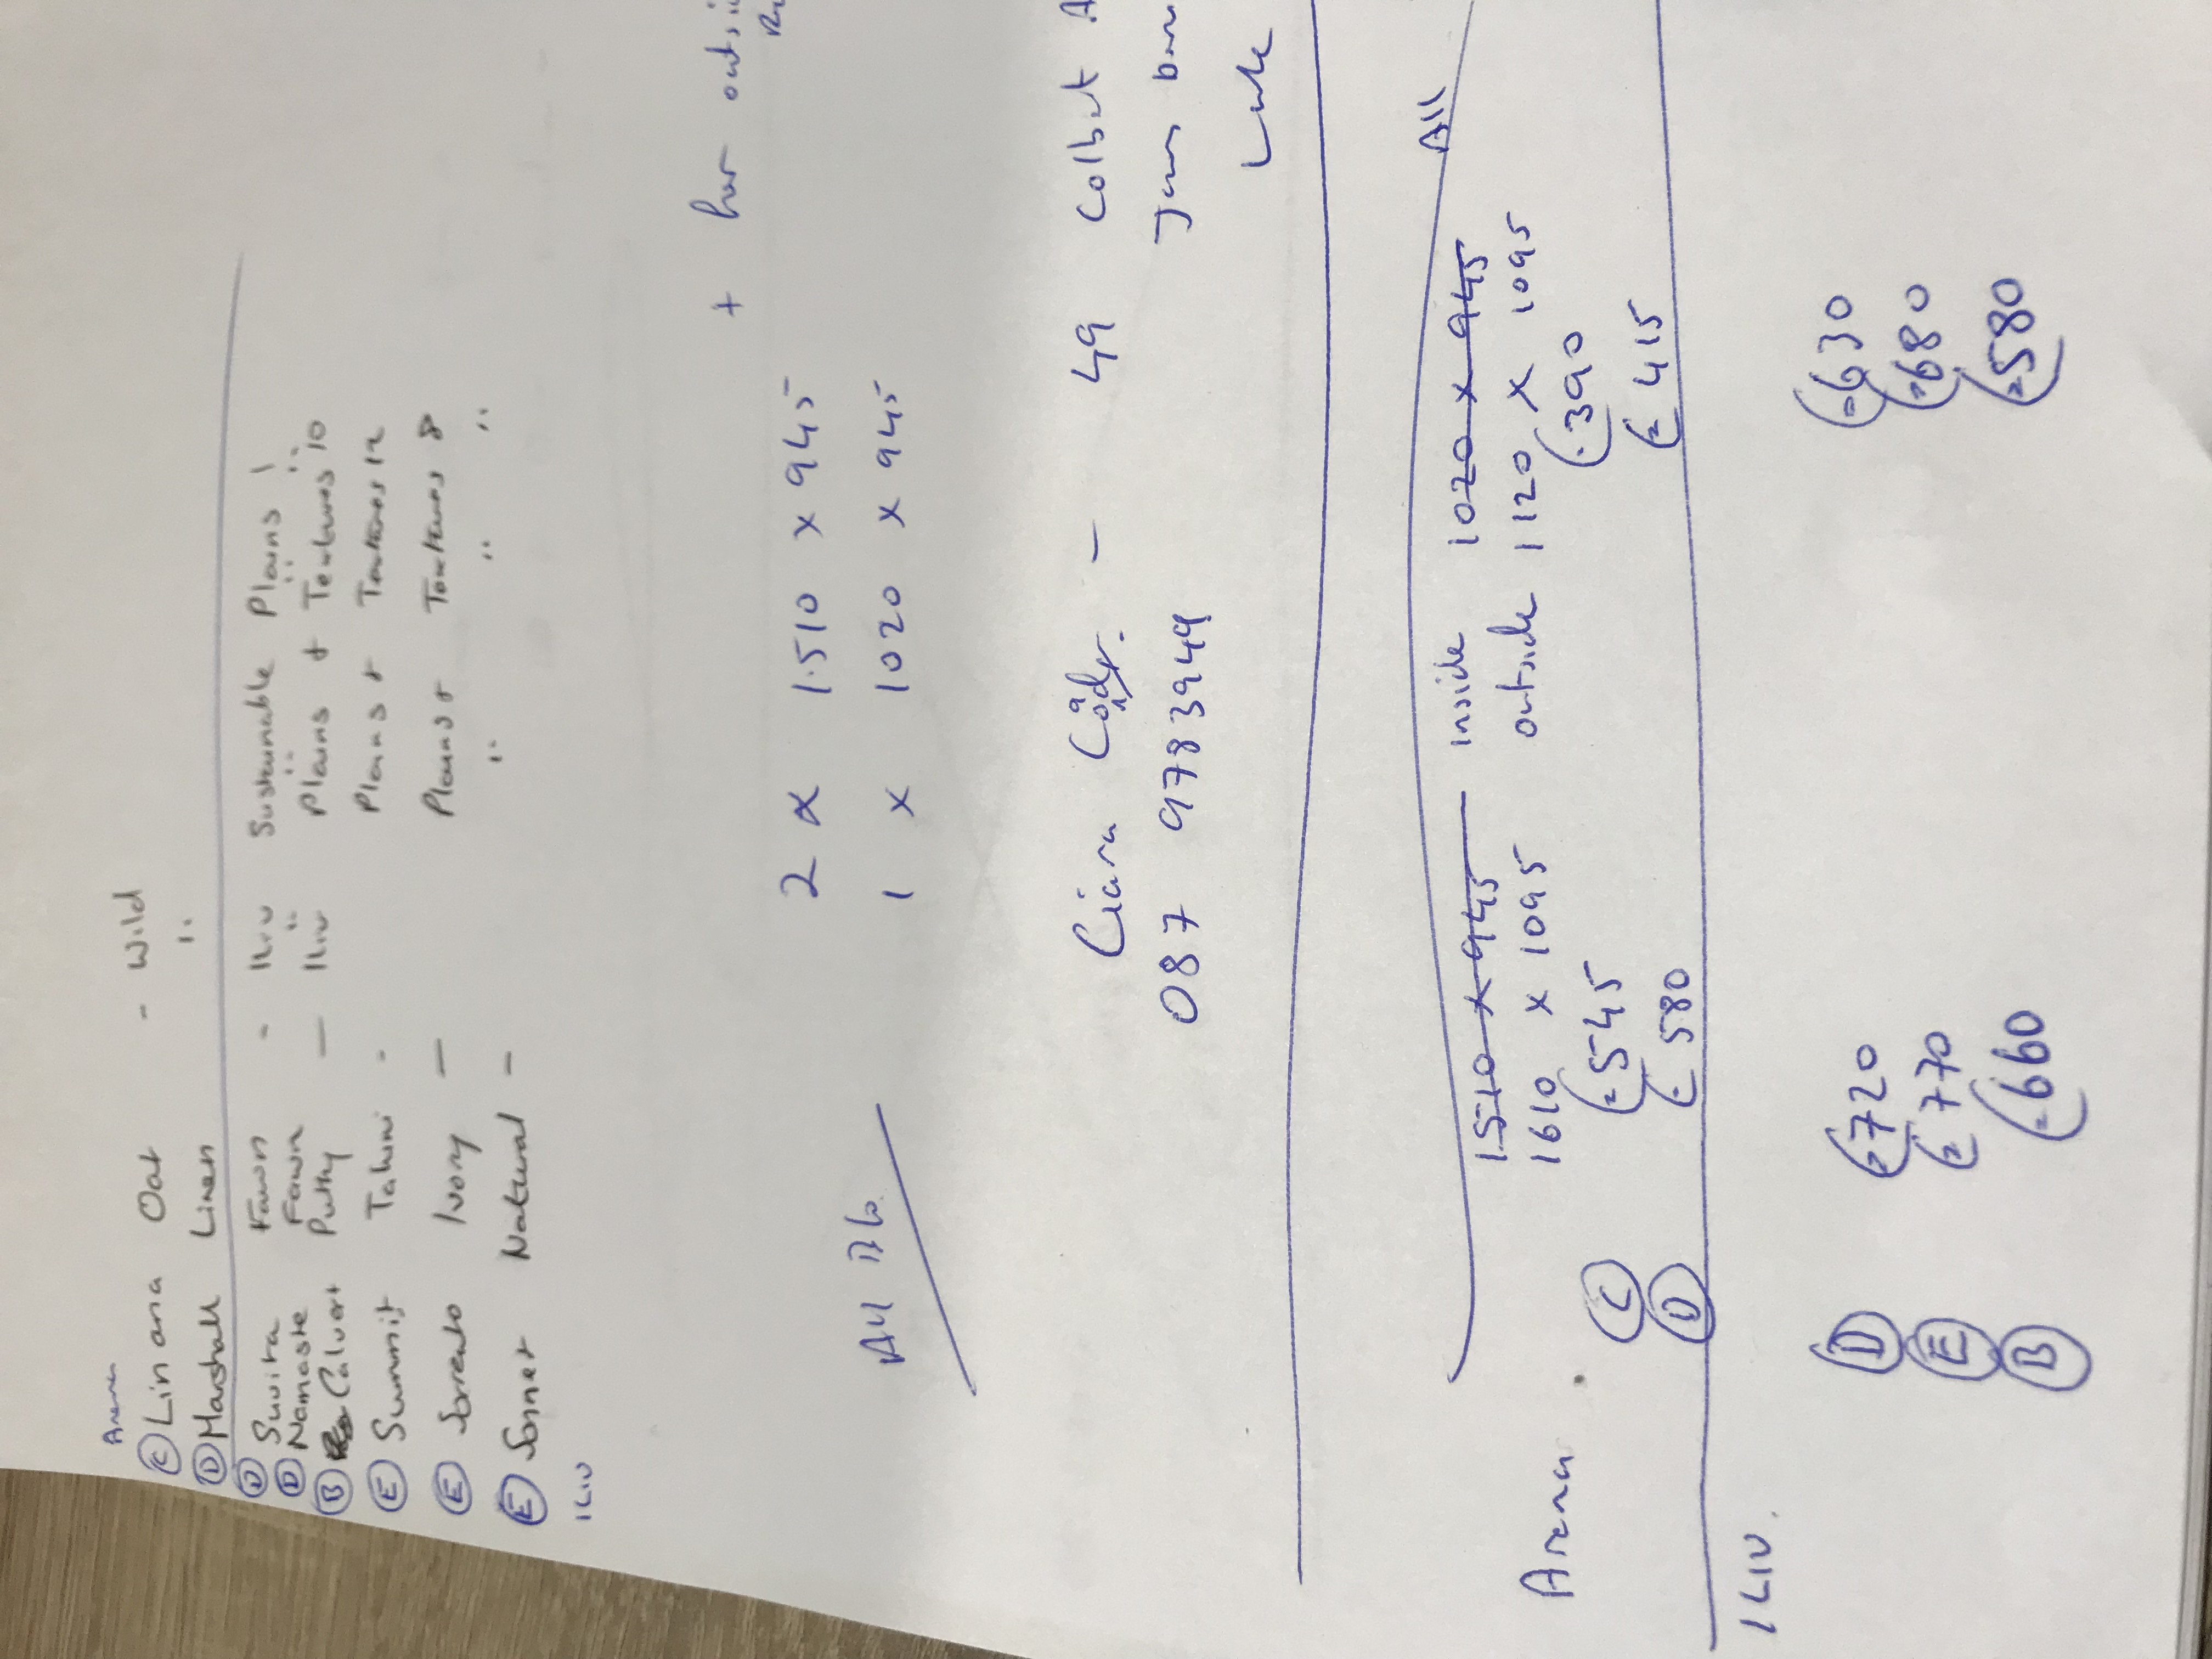 Arena
C Linara Oat - Wild
D Marshall Linen "
D Suvita Fawn - Iliv Sustainable Plains 1
D Namaste Fawn " " "
B Calvert Putty — Iliv Plains + Textures 10
E Summit Tahini - Plains + Textures 12
E Sorrento Ivory — Plains + Textures 8
E Sonnet Natural - " " "
ILIV
+ her outsi
2 x 1510 x 945
All 1 x 1020 x 945
Ciara — 49 Colbut A
087 9783949 Jam
Luke
1510 x 945 — inside 1020 x 945 All
Arena 1610 x 1095 outside 1120 x 1095
C 545 390
D 580 415
ILIV.
D 720 630
E 770 680
B 660 580